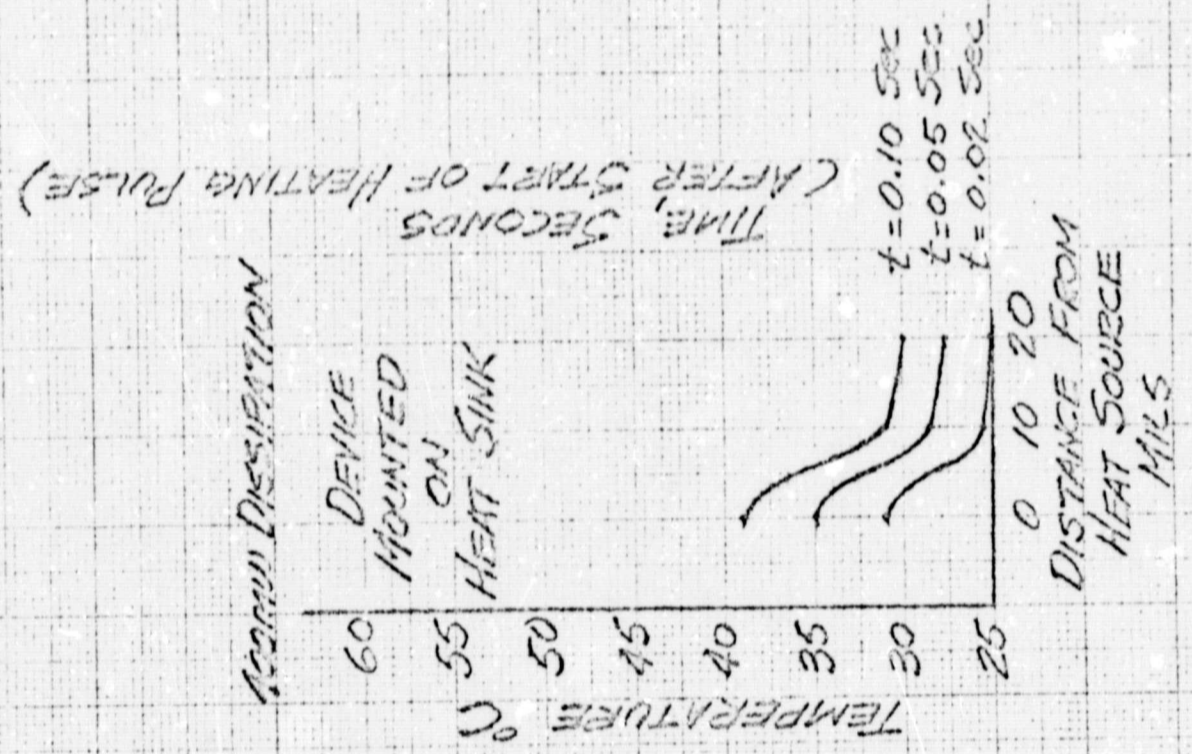 DISSIPATION
DEVICE
MOUNTED
ON
HEAT SINK
TIME, SECONDS
(AFTER START OF HEATING PULSE)
t=0.10 SEC
t=0.05 SEC
t=0.02 SEC
TEMPERATURE °C
60
55
50
45
40
35
30
25
0 10 20
DISTANCE FROM
HEAT SOURCE
MILS